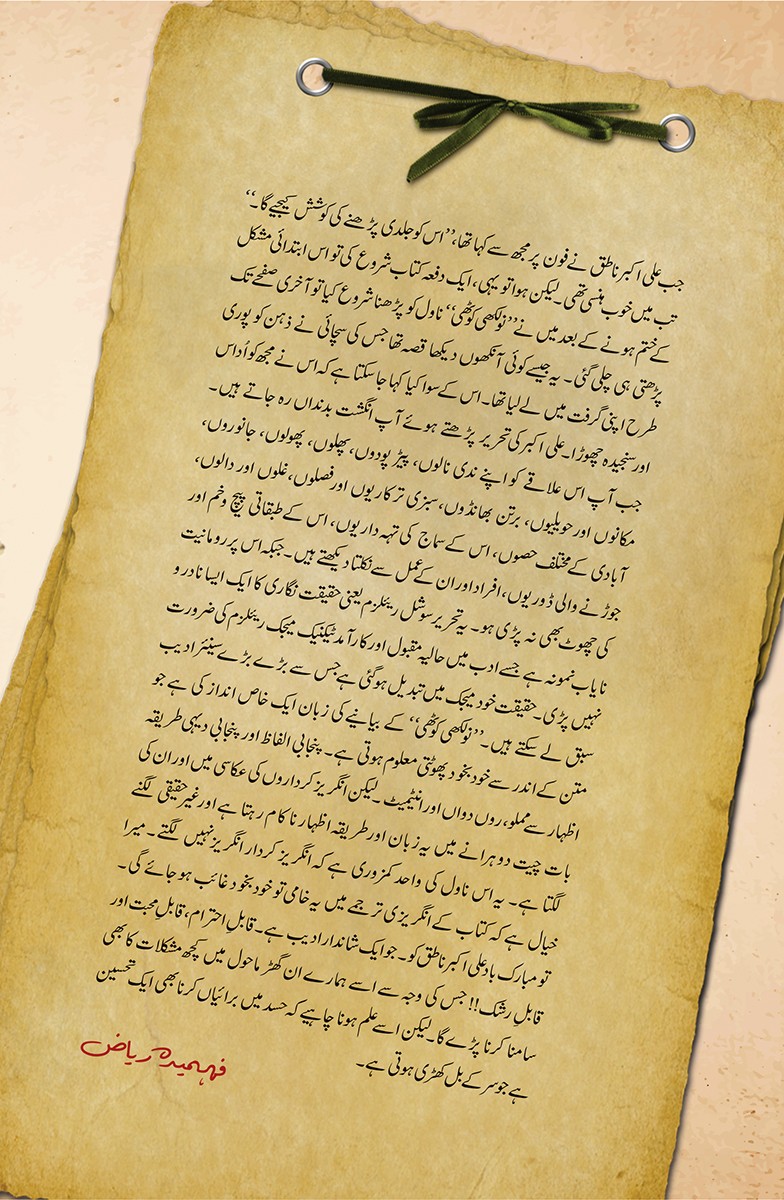 جب علی اکبر ناطق نے فون پر مجھ سے کہا تھا، ’’اس کو جلدی پڑھنے کی کوشش کیجیے گا۔‘‘
تب میں خوب ہنسی تھی۔ لیکن ہوا تو یہی، ایک دفعہ کتاب شروع کی تو اس ابتدائی مشکل
کے ختم ہونے کے بعد میں نے ’’نولکھی کوٹھی‘‘ ناول کو پڑھنا شروع کیا تو آخری صفحے تک
پڑھتی ہی چلی گئی۔ یہ جیسے کوئی آنکھوں دیکھا قصہ تھا جس کی سچائی نے ذہن کو پوری
طرح اپنی گرفت میں لے لیا تھا۔ اس کے سوا کیا کہا جا سکتا ہے کہ اس نے مجھ کو اُداس
اور سنجیدہ چھوڑا۔ علی اکبر کی تحریر پڑھتے ہوئے آپ انگشت بدنداں رہ جاتے ہیں۔
جب آپ اس علاقے کو اپنے ندی نالوں، پیڑ پودوں، پھلوں، پھولوں، جانوروں،
مکانوں اور حویلیوں، برتن بھانڈوں، سبزی ترکاریوں اور فصلوں، غلوں اور دالوں،
آبادی کے مختلف حصوں، اس کے سماج کی تہہ داریوں، اس کے طبقاتی پیچ و خم اور
جوڑنے والی ڈوریوں، افراد اور ان کے عمل سے نکلتا دیکھتے ہیں۔ جبکہ اس پر رومانیت
کی چھوٹ بھی نہ پڑی ہو۔ یہ تحریر سوشل ریئلزم یعنی حقیقت نگاری کا ایک ایسا نادر و
نایاب نمونہ ہے جسے ادب میں حالیہ مقبول اور کارآمد ٹیکنیک میجک ریئلزم کی ضرورت
نہیں پڑی۔ حقیقت خود میجک میں تبدیل ہو گئی ہے جس سے بڑے بڑے سینئر ادیب
سبق لے سکتے ہیں۔ ’’نولکھی کوٹھی‘‘ کے بیانیے کی زبان ایک خاص انداز کی ہے جو
متن کے اندر سے خود بخود پھوٹتی معلوم ہوتی ہے۔ پنجابی الفاظ اور پنجابی دیہی طریقہ
اظہار سے مملو، رواں دواں اور انٹیمیٹ۔ لیکن انگریز کرداروں کی عکاسی میں اور ان کی
بات چیت دوہرانے میں یہ زبان اور طریقہ اظہار ناکام رہتا ہے اور غیر حقیقی لگنے
لگتا ہے۔ یہ اس ناول کی واحد کمزوری ہے کہ انگریز کردار انگریز نہیں لگتے۔ میرا
خیال ہے کہ کتاب کے انگریزی ترجمے میں یہ خامی تو خود بخود غائب ہو جائے گی۔
تو مبارک باد علی اکبر ناطق کو۔ جو ایک شاندار ادیب ہے۔ قابلِ احترام، قابلِ محبت اور
قابلِ رشک!! جس کی وجہ سے اسے ہمارے ان گھڑ ماحول میں کچھ مشکلات کا بھی
سامنا کرنا پڑے گا۔ لیکن اسے علم ہونا چاہیے کہ حسد میں برائیاں کرنا بھی ایک تحسین
ہے جو سر کے بل کھڑی ہوتی ہے۔
فہمیدہ ریاض